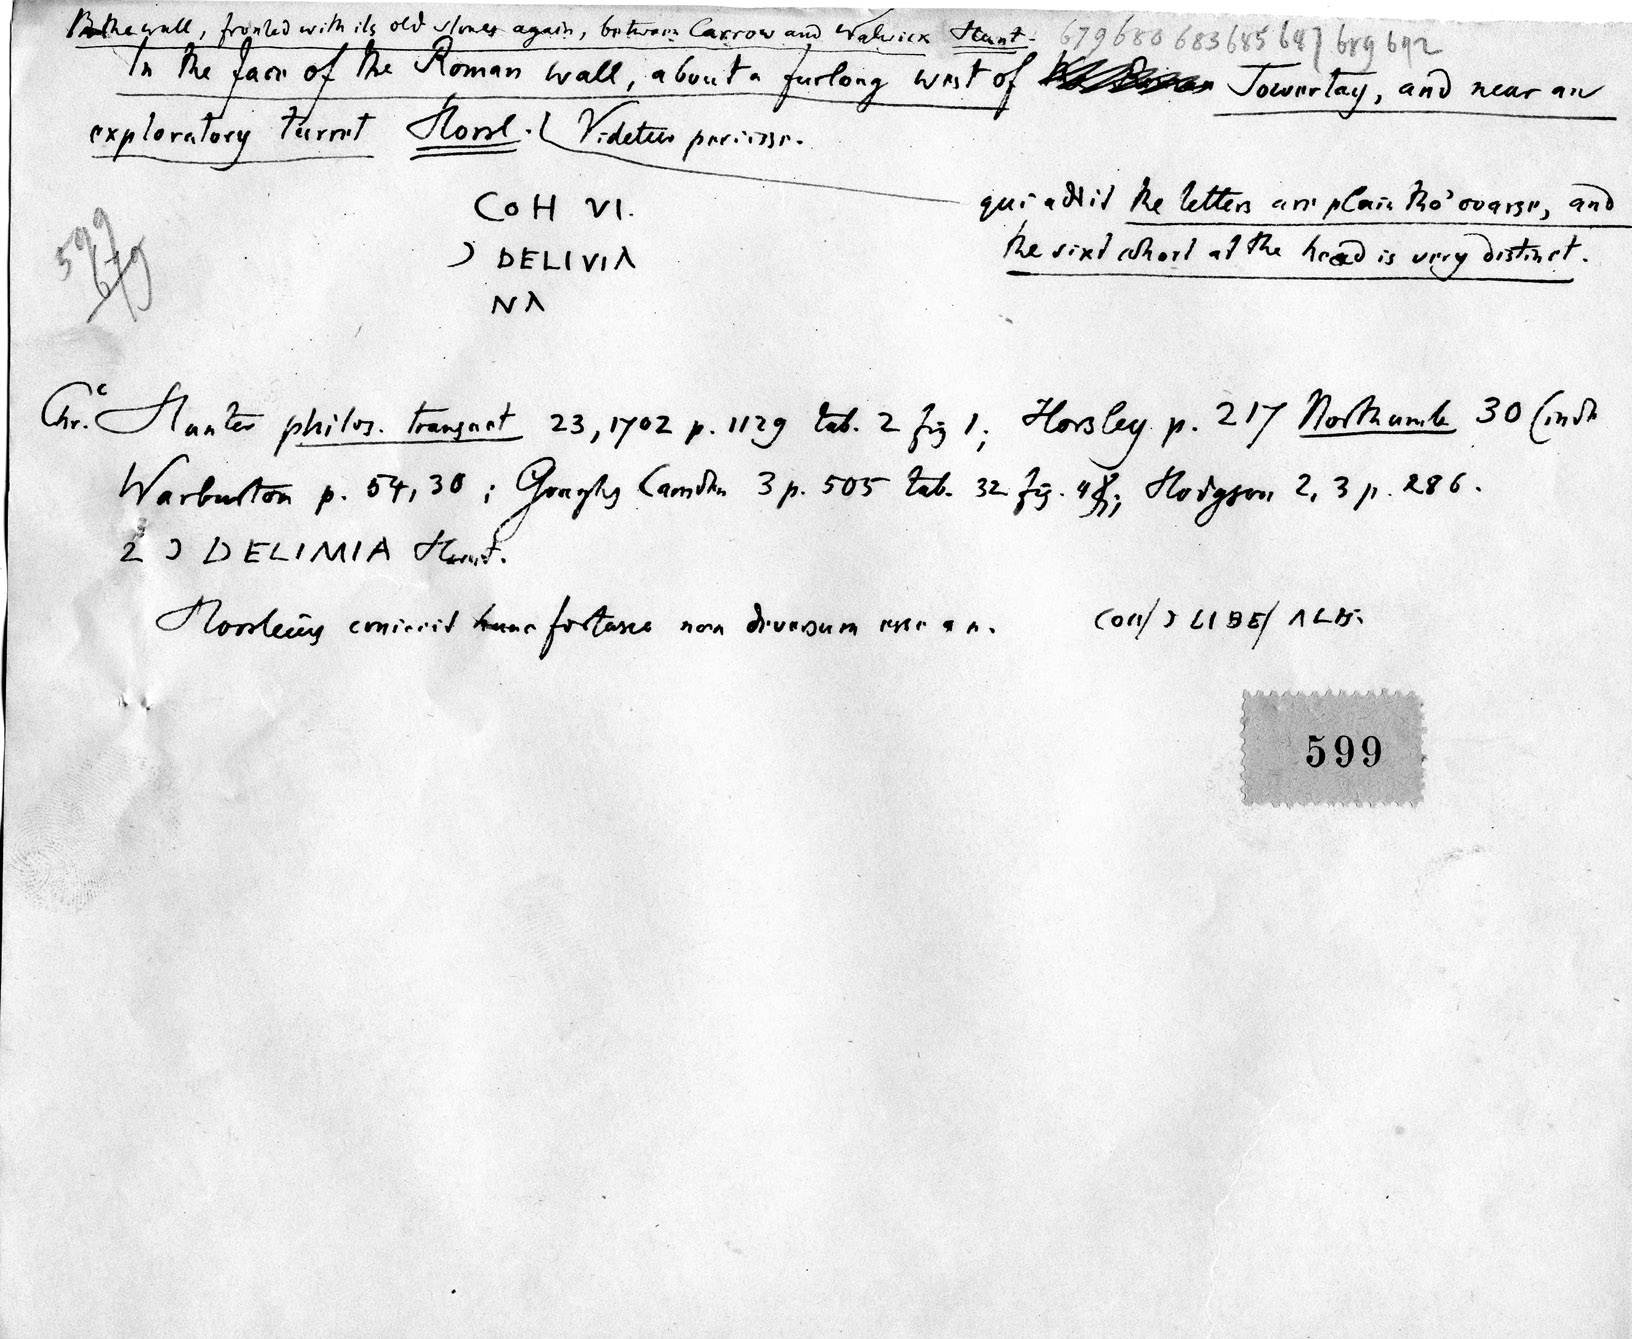 In the wall, fronted with its old stones again, between Carrow and Walwick Hunt. 679 680 683 685 687 689 692
In the face of the Roman wall, about a furlong west of Towertay, and near an
exploratory turret Horsl. Videtur periisse.
COH VI.
Ɔ DELIVIΛ
NΛ
qui addit the letters are plain tho' coarse, and
the sixt cohort at the head is very distinct.
599
679
Chr. Hunter philos. transact 23, 1702 p. 1129 tab. 2 fig 1; Horsley p. 217 Northumb 30 (inde
Warburton p. 54, 30; Goughs Camden 3 p. 505 tab. 32 fig. Hodgson 2, 3 p. 286.
2 Ɔ DELIMIA Hunt.
Horsleius coniecit hunc fortasse non diversum esse a n. COH/ Ɔ LIBE/ ΛLB.
599